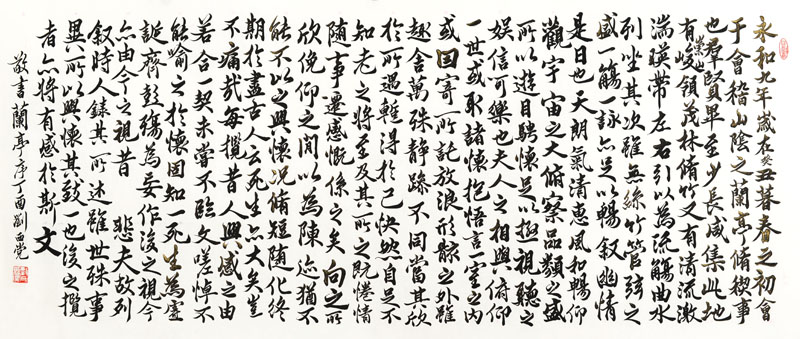 永和九年歲在癸丑暮春之初會
于會稽山陰之蘭亭脩稧事
也羣賢畢至少長咸集此地
有崇山峻領茂林脩竹又有清流激
湍暎帶左右引以為流觴曲水
列坐其次雖無絲竹管弦之
盛一觴一詠亦足以暢敘幽情
是日也天朗氣清惠風和暢仰
觀宇宙之大俯察品類之盛
所以遊目騁懷足以極視聽之
娛信可樂也夫人之相與俯仰
一世或取諸懷抱悟言一室之內
或因寄所託放浪形骸之外雖
趣舍萬殊静躁不同當其欣
於所遇蹔得於己快然自足不
知老之將至及其所之既惓情
隨事遷感慨係之矣向之所
欣俛仰之閒以為陳迹猶不
能不以之興懷況脩短隨化終
期於盡古人云死生亦大矣豈
不痛哉每攬昔人興感之由
若合一契未嘗不臨文嗟悼不
能喻之於懷固知一死生為虛
誕齊彭殤為妄作後之視今
亦由今之視昔 悲夫故列
敘時人錄其所述雖世殊事
異所以興懷其致一也後之攬
者亦將有感於斯文
敬書蘭亭序丁酉劉